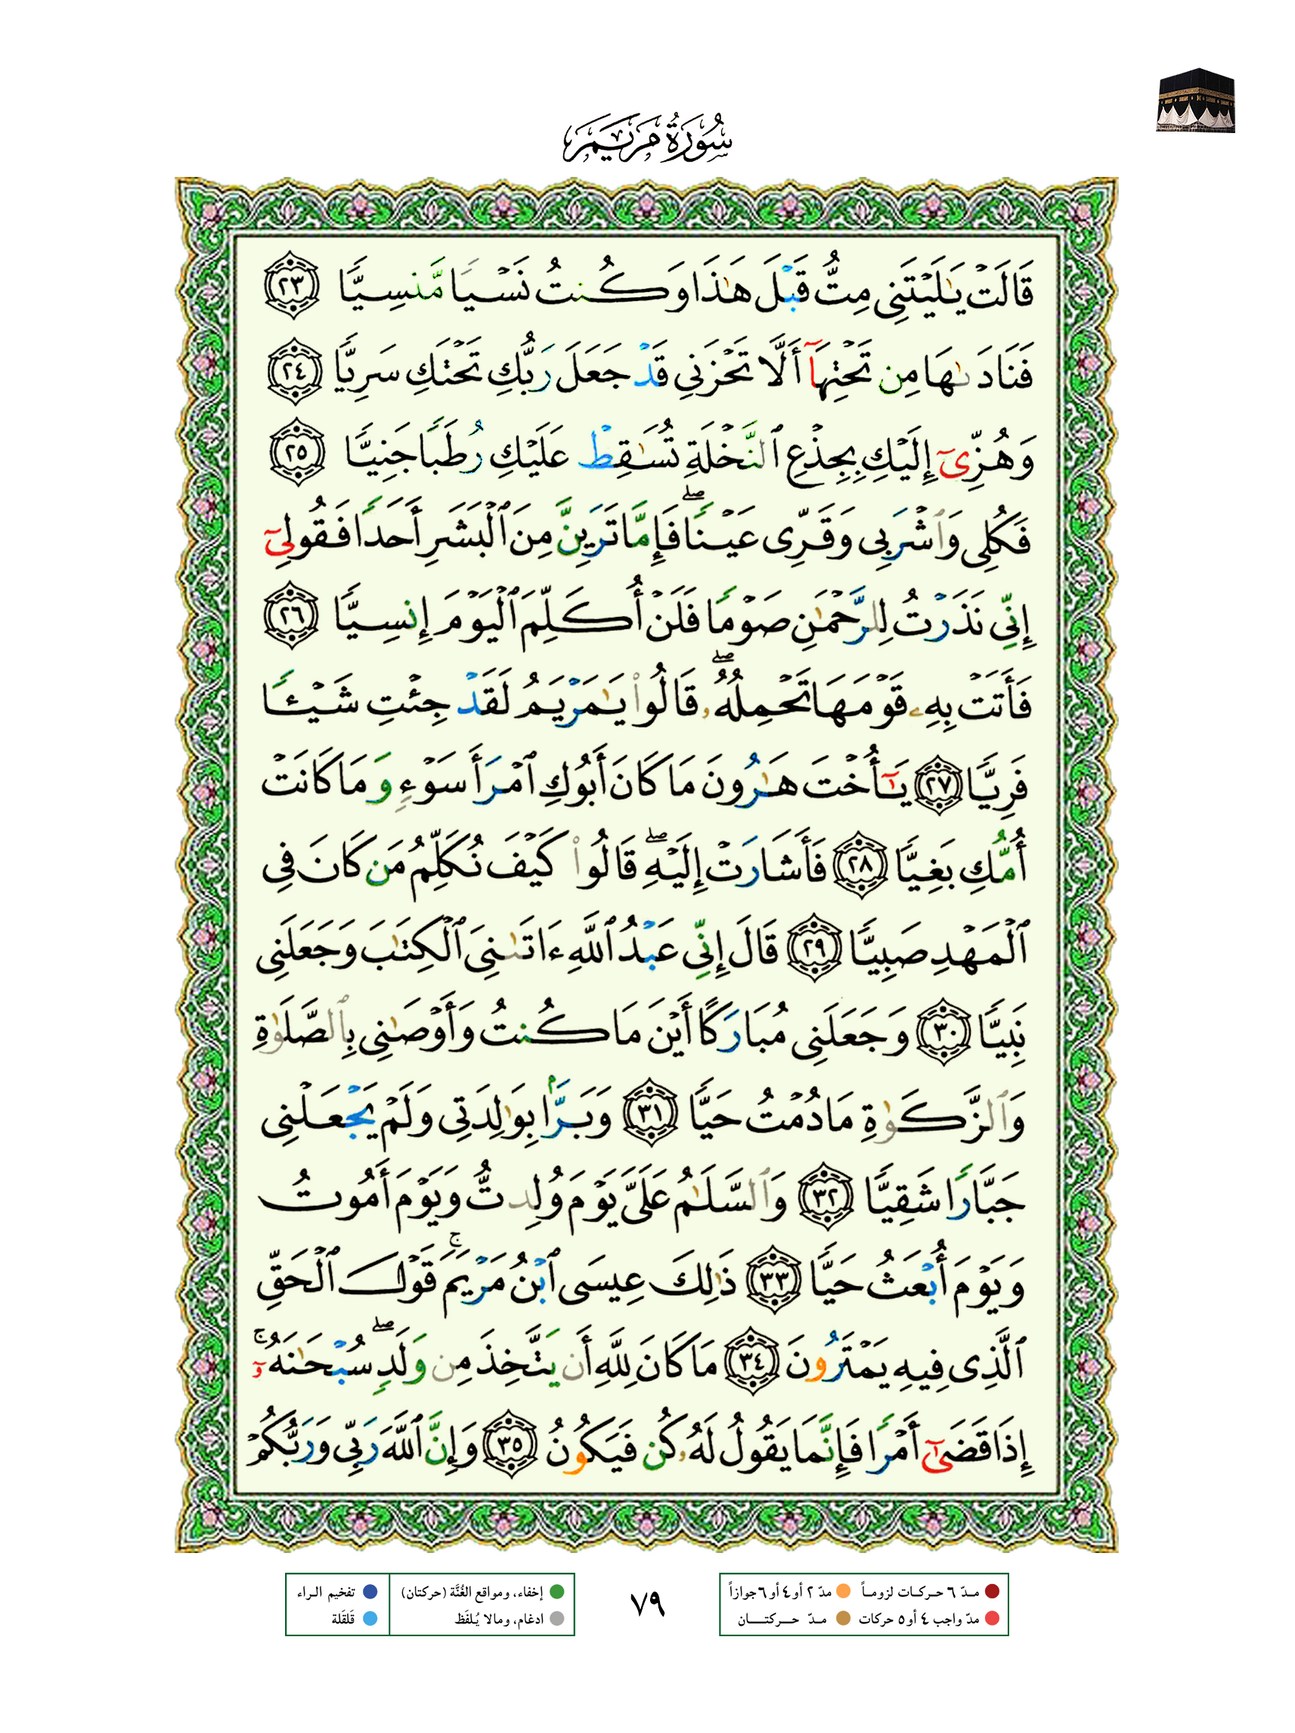 سُورَةُ مَرْيَمَ
قَالَتۡ يَٰلَيۡتَنِي مِتُّ قَبۡلَ هَٰذَا وَكُنتُ نَسۡيٗا مَّنسِيّٗا ٢٣
فَنَادَىٰهَا مِن تَحۡتِهَآ أَلَّا تَحۡزَنِي قَدۡ جَعَلَ رَبُّكِ تَحۡتَكِ سَرِيّٗا ٢٤
وَهُزِّيٓ إِلَيۡكِ بِجِذۡعِ ٱلنَّخۡلَةِ تُسَٰقِطۡ عَلَيۡكِ رُطَبٗا جَنِيّٗا ٢٥
فَكُلِي وَٱشۡرَبِي وَقَرِّي عَيۡنٗاۖ فَإِمَّا تَرَيِنَّ مِنَ ٱلۡبَشَرِ أَحَدٗا فَقُولِيٓ
إِنِّي نَذَرۡتُ لِلرَّحۡمَٰنِ صَوۡمٗا فَلَنۡ أُكَلِّمَ ٱلۡيَوۡمَ إِنسِيّٗا ٢٦
فَأَتَتۡ بِهِۦ قَوۡمَهَا تَحۡمِلُهُۥۖ قَالُواْ يَٰمَرۡيَمُ لَقَدۡ جِئۡتِ شَيۡـٔٗا
فَرِيّٗا ٢٧ يَٰٓأُخۡتَ هَٰرُونَ مَا كَانَ أَبُوكِ ٱمۡرَأَ سَوۡءٖ وَمَا كَانَتۡ
أُمُّكِ بَغِيّٗا ٢٨ فَأَشَارَتۡ إِلَيۡهِۖ قَالُواْ كَيۡفَ نُكَلِّمُ مَن كَانَ فِي
ٱلۡمَهۡدِ صَبِيّٗا ٢٩ قَالَ إِنِّي عَبۡدُ ٱللَّهِ ءَاتَىٰنِيَ ٱلۡكِتَٰبَ وَجَعَلَنِي
نَبِيّٗا ٣٠ وَجَعَلَنِي مُبَارَكًا أَيۡنَ مَا كُنتُ وَأَوۡصَٰنِي بِٱلصَّلَوٰةِ
وَٱلزَّكَوٰةِ مَا دُمۡتُ حَيّٗا ٣١ وَبَرَّۢا بِوَٰلِدَتِي وَلَمۡ يَجۡعَلۡنِي
جَبَّارٗا شَقِيّٗا ٣٢ وَٱلسَّلَٰمُ عَلَيَّ يَوۡمَ وُلِدتُّ وَيَوۡمَ أَمُوتُ
وَيَوۡمَ أُبۡعَثُ حَيّٗا ٣٣ ذَٰلِكَ عِيسَى ٱبۡنُ مَرۡيَمَۚ قَوۡلَ ٱلۡحَقِّ
ٱلَّذِي فِيهِ يَمۡتَرُونَ ٣٤ مَا كَانَ لِلَّهِ أَن يَتَّخِذَ مِن وَلَدٖۖ سُبۡحَٰنَهُۥٓۚ
إِذَا قَضَىٰٓ أَمۡرٗا فَإِنَّمَا يَقُولُ لَهُۥ كُن فَيَكُونُ ٣٥ وَإِنَّ ٱللَّهَ رَبِّي وَرَبُّكُمۡ
مـدّ ٦ حـركـات لزومـاً مدّ ٢ أو ٤ أو ٦ جوازاً
مدّ واجب ٤ أو ٥ حركات مـدّ حـــركتـــان
٧٩
إخفاء، ومواقع الغُنَّة (حركتان) تفخيم الراء
ادغام، ومالا يُلفَظ قلقلة